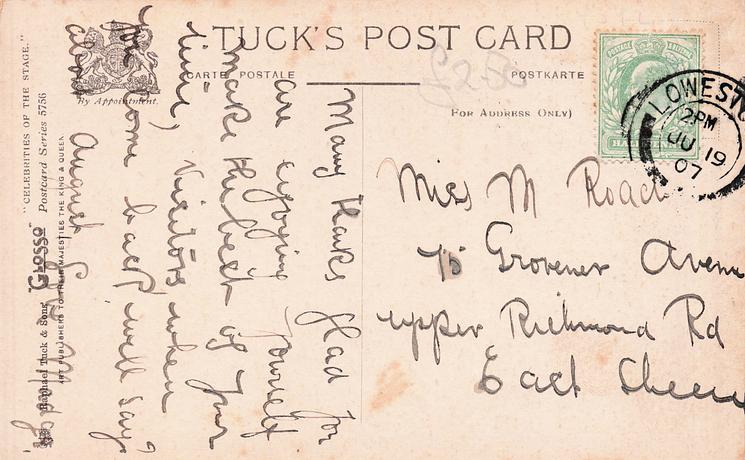 TUCK'S POST CARD
CARTE POSTALE
POSTKARTE
By Appointment.
(FOR ADDRESS ONLY)
"CELEBRITIES OF THE STAGE."
Postcard Series 5756
"GLOSSO"
Raphael Tuck & Sons
ART PUBLISHERS TO THEIR MAJESTIES THE KING & QUEEN
POSTAGE & REVENUE
LOWEST
2PM
JU 19
07
£2.50
Miss M Road
15 Grovener Avenu
upper Richmond Rd
East Sheen
Many thanks Glad you
are enjoying yourself
make the best of your
time, Visitors when
you come back will say
August